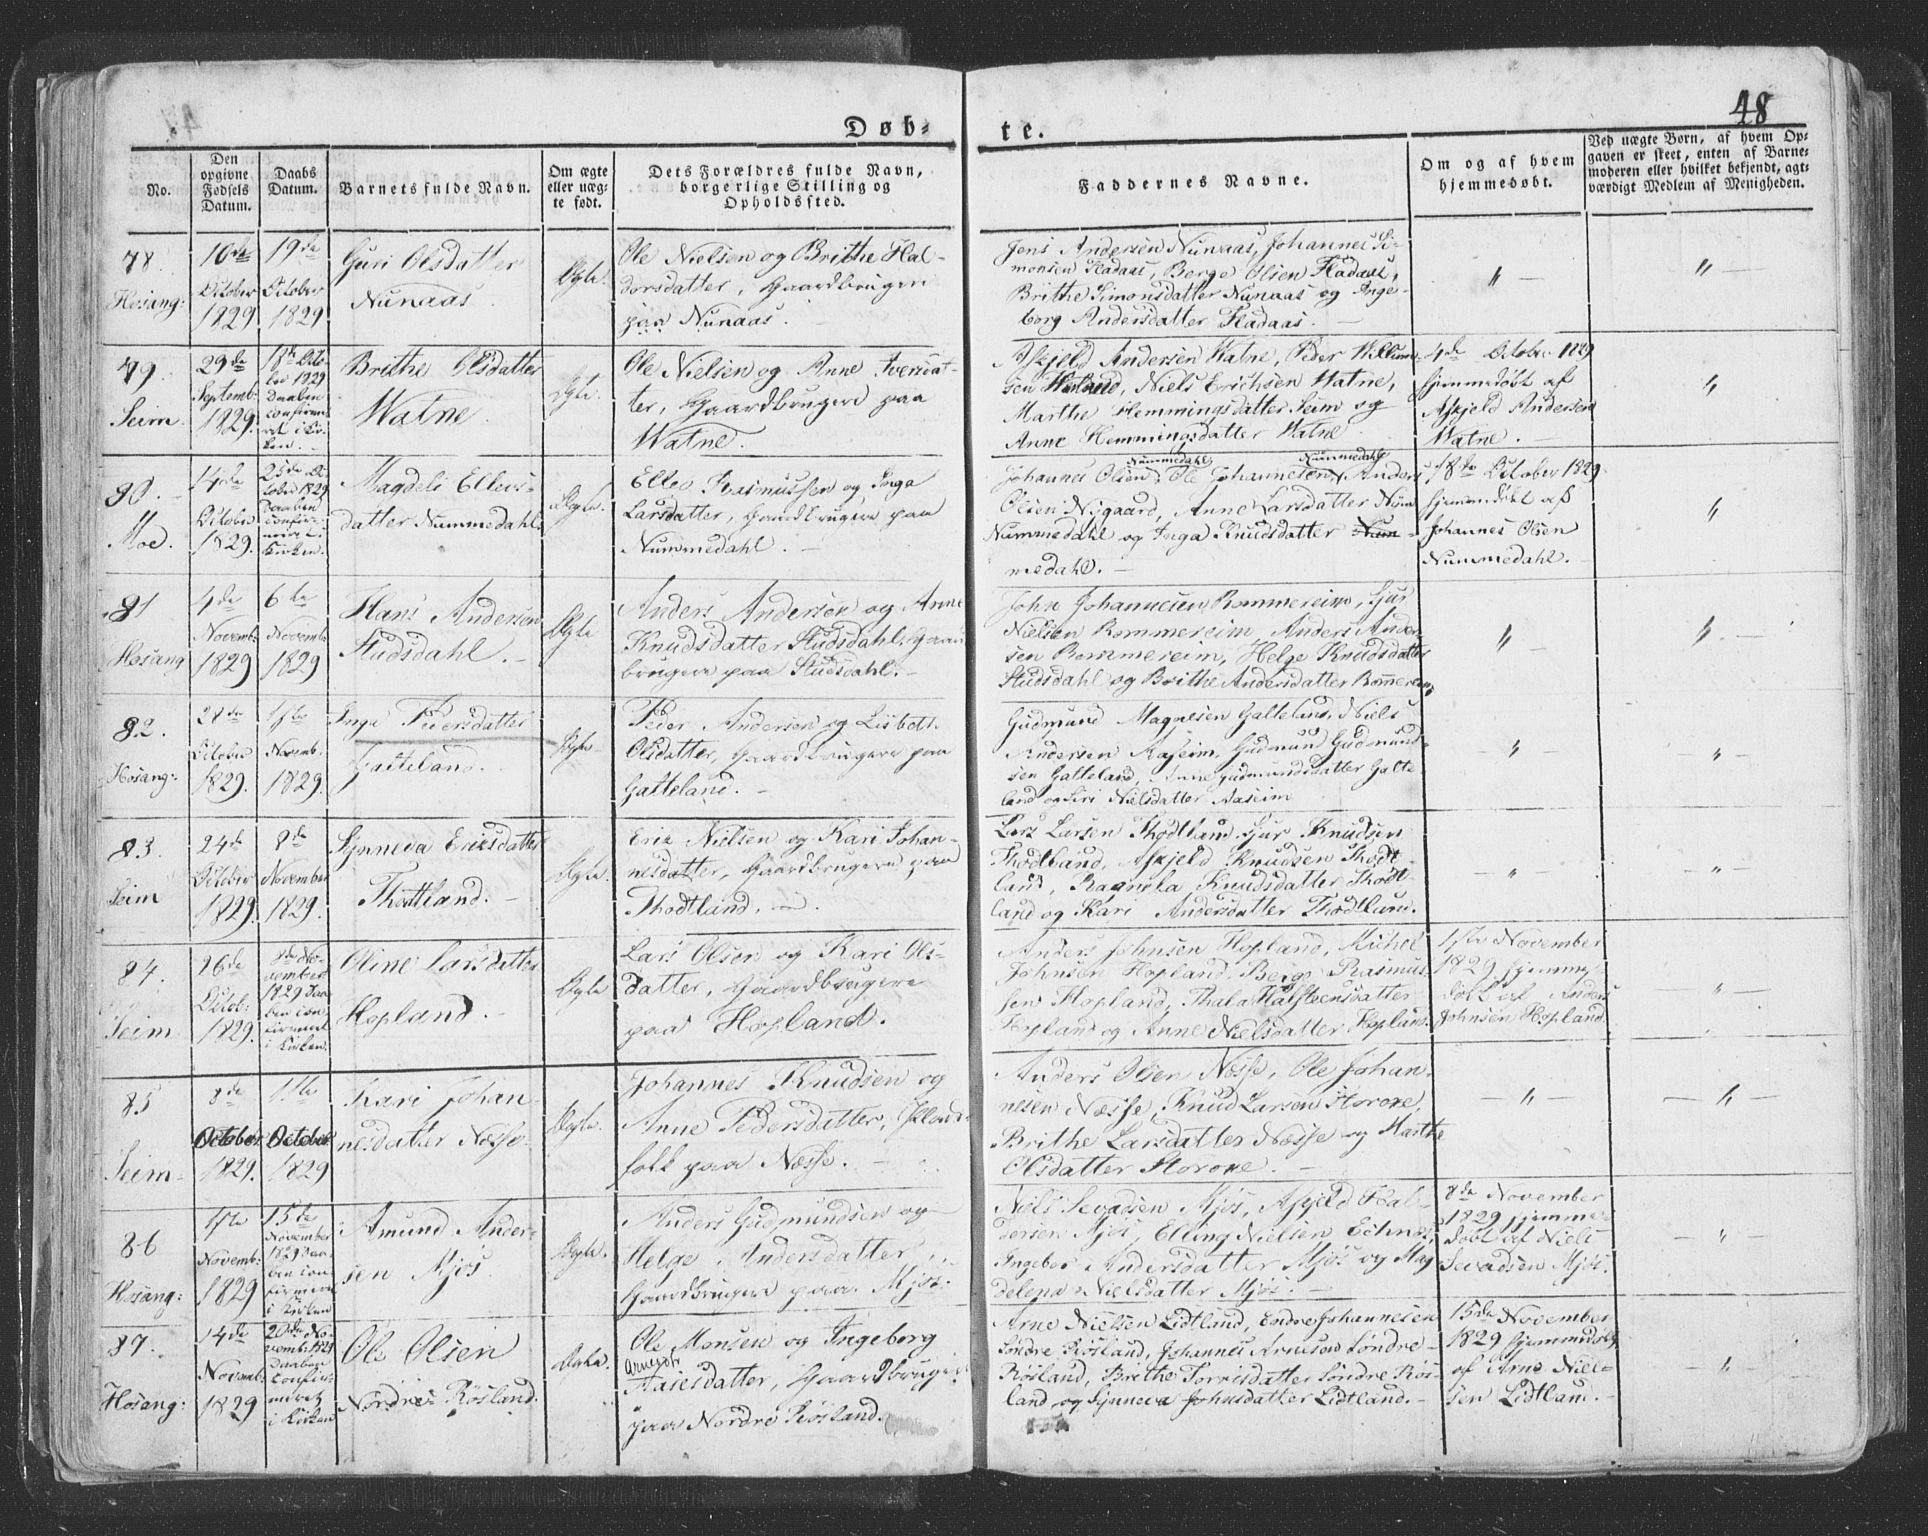 48
Døb-
te.
No.
Den
opgivne
Fødsels
Datum.
Daabs
Datum.
Barnets fulde Navn.
Om ægte
eller uæg-
te født.
Dets Forældres fulde Navn,
borgerlige Stilling og
Opholdssted.
Faddernes Navne.
Om og af hvem
hjemmedøbt.
Ved uægte Børn, af hvem Op-
gaven er skeet, enten af Barne-
moderen eller hvilket bekjendt, agt-
værdigt Medlem af Menigheden.
78.
Hosang:
16de
October
1829
19de
October
1829
Guri Olsdatter
Nunaas
Ægte.
Ole Nielsen og Brithe Hal-
dorsdatter, Gaardbrugere
paa Nunaas.
Jens Andersen Nunaas, Johannes Si-
monsen Fladaas, Berge Olsen Fladaas,
Brithe Simonsdatter Nunaas og Inge-
borg Andersdatter Fladaas.
79.
Seim
29de
Septemb:
1829.
18de Octo-
ber 1829
Daaben
confirme-
ret i Kir-
ken.
Brithe Olsdatter
Watne
Ægte.
Ole Nielsen og Anne Iversdat-
ter, Gaardbrugere paa
Watne.
Askjeld Andersen Watne, Peder Willum-
sen, Niels Erichsen Watne,
Marthe Hemmingsdatter Seim og
Anne Hemmingsdatter Watne
4de October 1829
hjemmedøbt af
Askjeld Andersen
Watne.
80.
Moe.
14de
October
1829.
25de Oc-
tober 1829
Daaben
confir-
meret i
Kirken.
Magdeli Ellevs-
datter Nummedahl.
Ægte.
Ellev Rasmussen og Inga
Larsdatter, Gaardbrugere paa
Nummedahl.
Nummedahl Nummedahl
Johannes Olsen, Ole Johannesen, Anders
Olsen Nygaard, Anne Larsdatter
Nummedahl og Inga Knudsdatter Num-
medahl.
18de October 1829.
hjemmedøbt af
Johannes Olsen
Nummedahl.
81
Hosang
4de
Novemb:
1829
6te
Novemb:
1829
Hans Andersen
Studsdahl.
Ægte
Anders Andersen og Anne
Knudsdatter Studsdahl, Gaard-
brugere paa Studsdahl.
John Johannesen Rommereim, Sjur
Nielsen Rommereim, Anders Ander-
sen Rommereim, Helge Knudsdatter
Studsdahl og Brithe Andersdatter Rommereim
82.
Hosang:
28de
October
1829.
1ste
Novemb:
1829.
Inga Pedersdatter
Galteland.
Ægte
Peder Andersen og Lisbeth
Olsdatter, Gaardbrugere paa
Galteland.
Gudmund Magnesen Galteland, Niels
Andersen Aaseim, Gudmund Gudmund-
sen Galteland, Anne Gudmundsdatter Galte-
land og Siri Nielsdatter Aaseim
83.
Seim
24de
October
1829.
8de
November
1829.
Synneva Eriksdatter
Thodtland.
Ægte.
Erik Nielsen og Kari Johan-
nesdatter, Gaardbrugere paa
Thodtland.
Lars Larsen Thodtland, Sjur Knudsen
Thodtland, Askjeld Knudsen Thodt-
land, Ragnela Knudsdatter Thodt-
land og Kari Andersdatter Thodtland.
84.
Seim
26de
Octob:
1829.
8de No-
vember
1829 Daa-
ben con-
firmeret
i Kirken.
Oline Larsdatter
Hopland.
Ægte
Lars Olsen og Kari Ols-
datter, Gaardbrugere
paa Hopland.
Anders Johnsen Hopland, Michel
Johnsen Hopland, Berge Rasmus-
sen Hopland, Thala Halsteensdatter
Hopland og Anne Nielsdatter Hopland.
1ste November
1829 hjemme-
døbt af Anders
Johnsen Hopland
85
Seim
8de
October
1829.
11te
October
1829
Kari Johan-
nesdatter Næsse.
Ægte.
Johannes Knudsen og
Anne Pedersdatter,
folk paa Næsse.
Anders Olsen Næsse, Ole Johan-
nesen Næsse, Knud Larsen Storoxe,
Brithe Larsdatter Næsse og Marthe
Olsdatter Storoxe.
86
Hosang:
1ste
Novemb:
1829
15de
November
1829 Daa-
ben con-
firmeret
i Kirken
Amund Ander-
sen Mjøs
Ægte.
Anders Gudmundsen og
Helge Andersdatter,
Gaardbrugere paa Mjøs.
Niels Sevadsen Mjøs, Askjeld Hal-
dorsen Mjøs, Elling Nielsen,
Ingebor Andersdatter Mjøs og Mag-
delena Nielsdatter Mjøs.
8de November
1829 hjemme-
døbt af Niels
Sevadsen Mjøs.
87.
Hosang:
14de
Novemb:
1829
20de No-
vemb: 1829
Daaben
confir-
meret
i Kirken
Ole Olsen
Nordre Røsland.
Ægte.
Ole Monsen og Ingeborg
datter, Gaardbrugere
paa Nordre Røsland.
Arne Nielsen Lidtland, Endre Johannesen
Søndre Røsland, Johannes Arnesen Søndre
Røsland, Brithe Torrisdatter Søndre Røs-
land og Synneva Johnsdatter Lidtland.
15de November
1829 hjemmedøbt
af Arne Niel-
sen Lidtland.